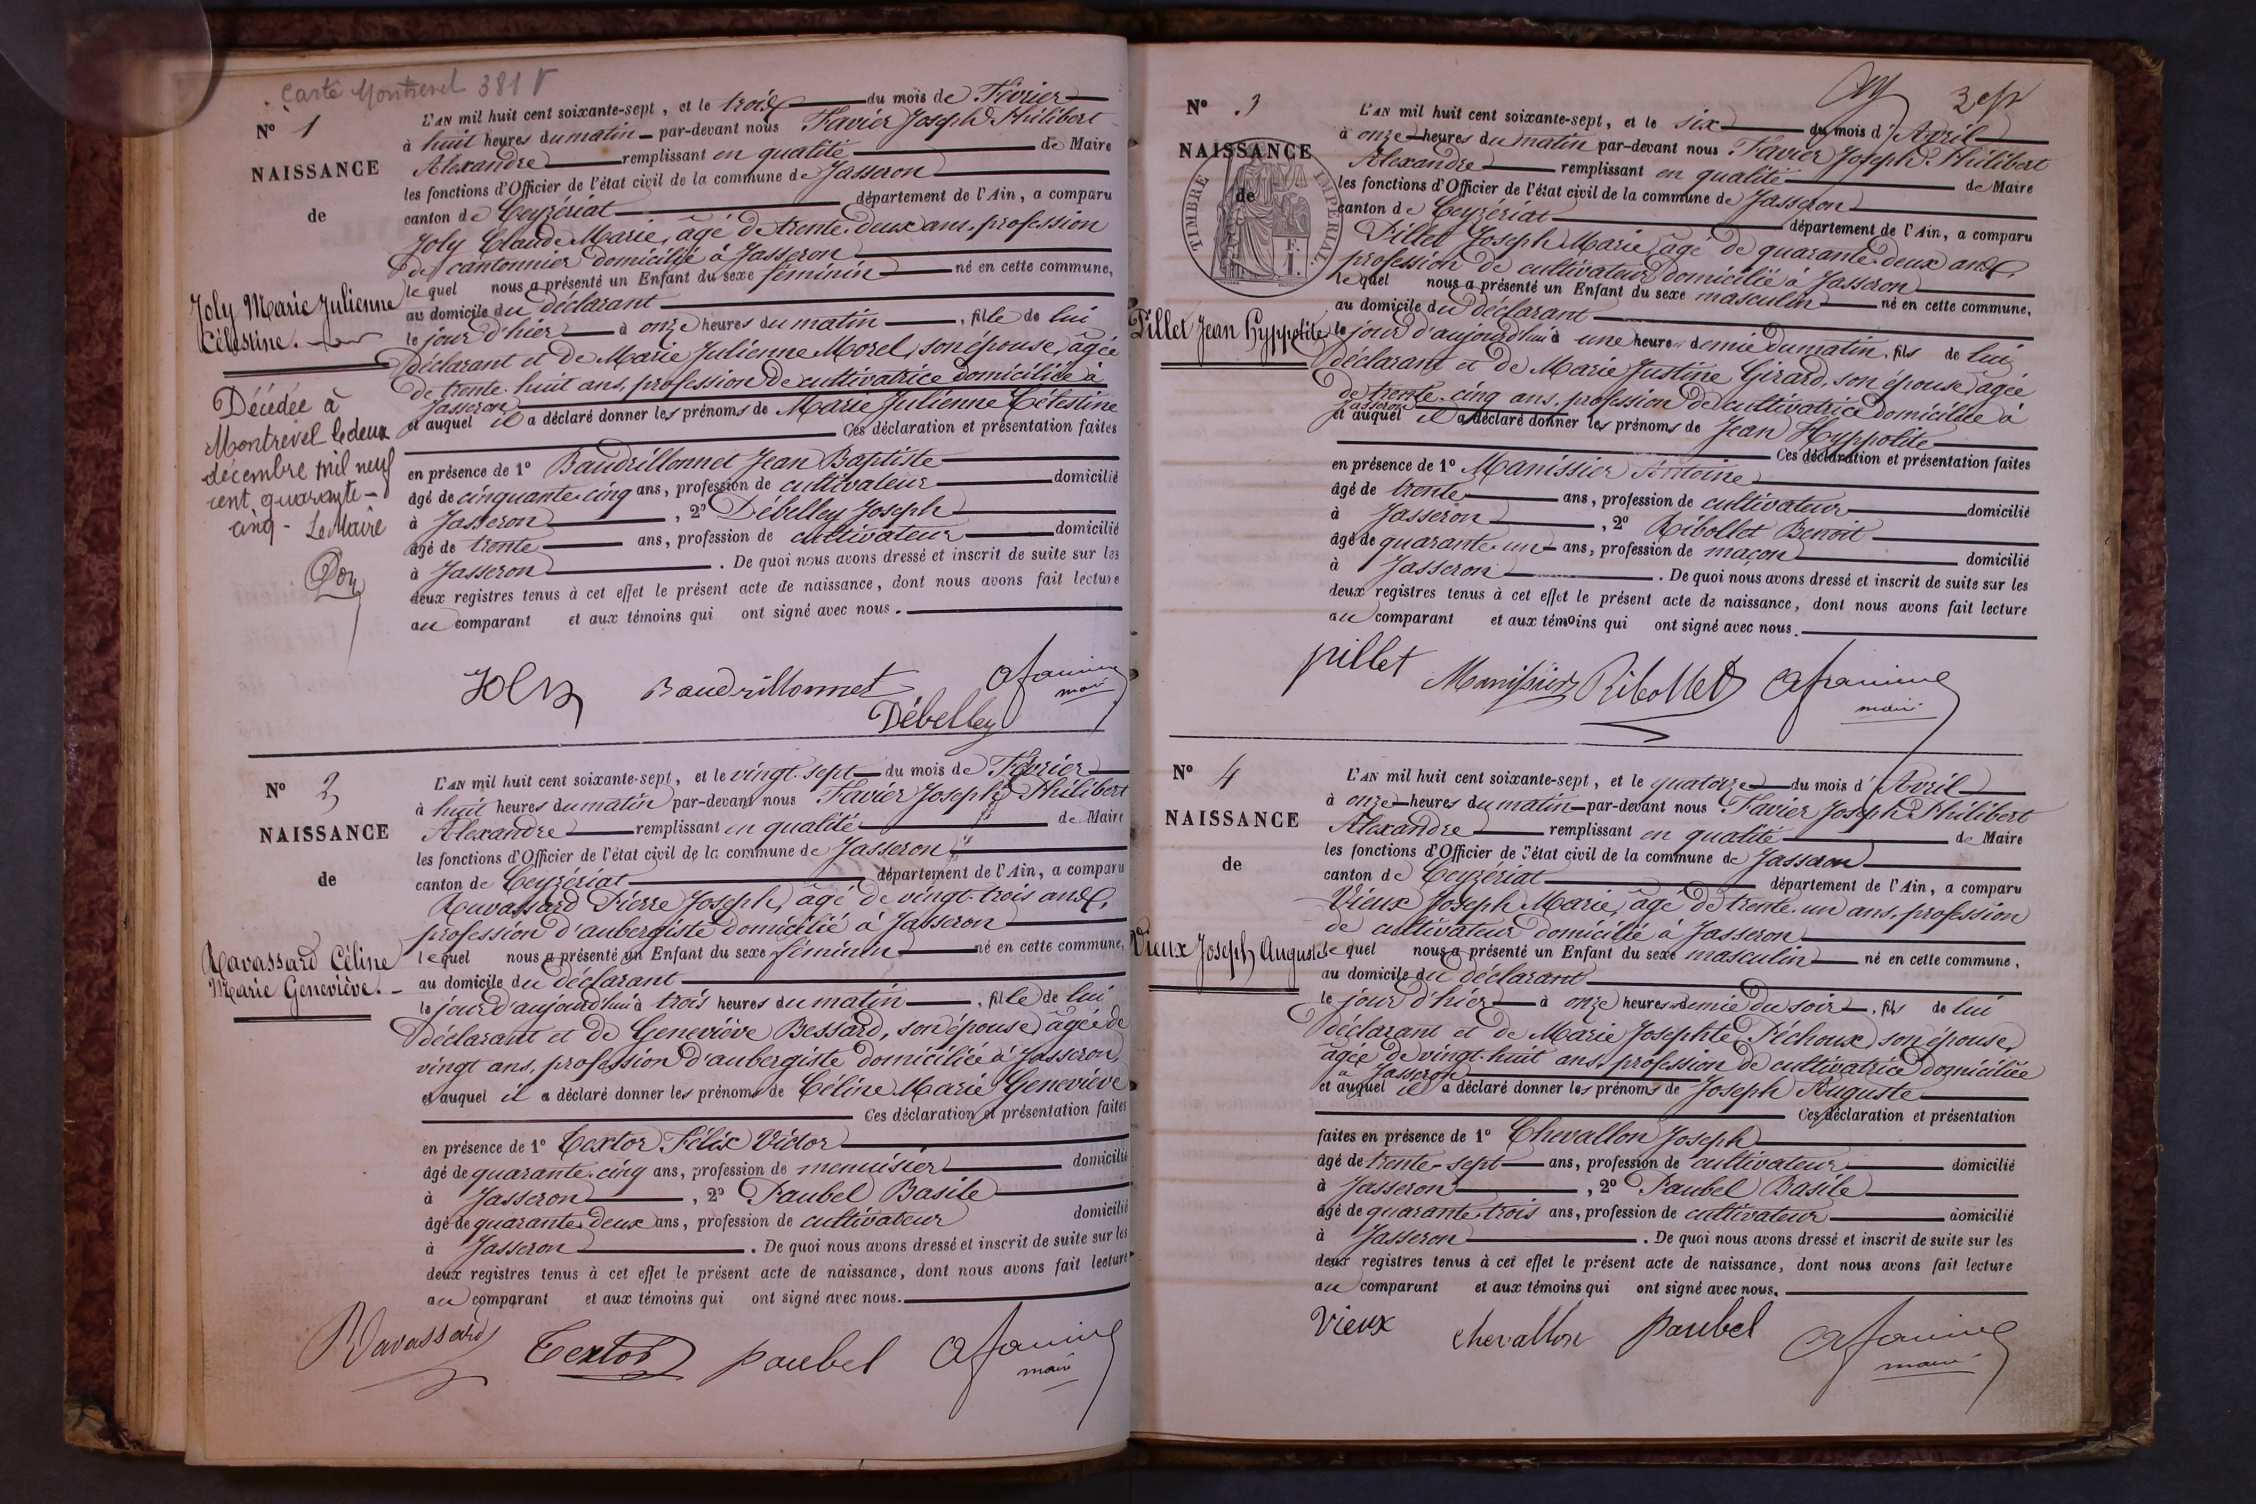 Carte Montrevel 381 V
N° 1
NAISSANCE
de
Joly Marie Julienne
Célestine.
Décédée à
Montrevel le deux
décembre mil neuf
cent quarante-
cinq - Le Maire
L'AN mil huit cent soixante-sept, et le trois du mois de Février
à huit heures du matin par-devant nous Favier Joseph Philibert
Alexandre remplissant en qualité de Maire
les fonctions d'Officier de l'état civil de la commune de Jasseron
canton de Ceyzériat département de l'Ain, a comparu
Joly Claude Marie, âgé de trente-deux ans, profession
de cantonnier domicilié à Jasseron
lequel nous a présenté un Enfant du sexe féminin né en cette commune,
au domicile du déclarant
le jour d'hier à onze heures du matin, fille de lui
déclarant et de Marie Julienne Morel, son épouse, âgée
de trente-huit ans, profession de cultivatrice domiciliée à
Jasseron
et auquel il a déclaré donner les prénoms de Marie Julienne Célestine
Ces déclaration et présentation faites
en présence de 1° Baudrillonnet Jean Baptiste
âgé de cinquante-cinq ans, profession de cultivateur domicilié
à Jasseron, 2° Débelley Joseph
âgé de trente ans, profession de cultivateur domicilié
à Jasseron. De quoi nous avons dressé et inscrit de suite sur les
deux registres tenus à cet effet le présent acte de naissance, dont nous avons fait lecture
au comparant et aux témoins qui ont signé avec nous.
Joly Baudrillonnet
maire
Débelley
N° 2
NAISSANCE
de
Ravassard Céline
Marie Geneviève.
L'AN mil huit cent soixante-sept, et le vingt-sept du mois de Février
à huit heures du matin par-devant nous Favier Joseph Philibert
Alexandre remplissant en qualité de Maire
les fonctions d'Officier de l'état civil de la commune de Jasseron
canton de Ceyzériat département de l'Ain, a comparu
Ravassard Pierre Joseph, âgé de vingt-trois ans,
profession d'aubergiste domicilié à Jasseron
lequel nous a présenté un Enfant du sexe féminin né en cette commune,
au domicile du déclarant
le jour d'aujourd'hui à trois heures du matin, fille de lui
déclarant et de Geneviève Bessard, son épouse, âgée de
vingt ans, profession d'aubergiste domiciliée à Jasseron
et auquel il a déclaré donner les prénoms de Céline Marie Geneviève
Ces déclaration et présentation faites
en présence de 1° Textor Félix Victor
âgé de quarante-cinq ans, profession de menuisier domicilié
à Jasseron, 2° Paubel Basile
âgé de quarante-deux ans, profession de cultivateur domicilié
à Jasseron. De quoi nous avons dressé et inscrit de suite sur les
deux registres tenus à cet effet le présent acte de naissance, dont nous avons fait lecture
au comparant et aux témoins qui ont signé avec nous.
Ravassard Textor paubel
maire
N° 3
TIMBRE IMPERIAL
NAISSANCE
de
Pillet Jean Hyppolite
L'AN mil huit cent soixante-sept, et le six du mois d'Avril
à onze heures du matin par-devant nous Favier Joseph Philibert
Alexandre remplissant en qualité de Maire
les fonctions d'Officier de l'état civil de la commune de Jasseron
canton de Ceyzériat département de l'Ain, a comparu
Pillet Joseph Marie âgé de quarante-deux ans,
profession de cultivateur domicilié à Jasseron
lequel nous a présenté un Enfant du sexe masculin né en cette commune,
au domicile du déclarant
le jour d'aujourd'hui à une heure demie du matin, fils de lui
déclarant et de Marie Justine Girard, son épouse, âgée
de trente-cinq ans, profession de cultivatrice domiciliée à
Jasseron
et auquel il a déclaré donner les prénoms de Jean Hyppolite
Ces déclaration et présentation faites
en présence de 1° Manissier Antoine
âgé de trente ans, profession de cultivateur domicilié
à Jasseron, 2° Ribollet Benoit
âgé de quarante-un ans, profession de maçon domicilié
à Jasseron. De quoi nous avons dressé et inscrit de suite sur les
deux registres tenus à cet effet le présent acte de naissance, dont nous avons fait lecture
au comparant et aux témoins qui ont signé avec nous.
pillet Manissier Ribollet
maire
N° 4
NAISSANCE
de
Vieux Joseph Auguste
L'AN mil huit cent soixante-sept, et le quatorze du mois d'Avril
à onze heures du matin par-devant nous Favier Joseph Philibert
Alexandre remplissant en qualité de Maire
les fonctions d'Officier de l'état civil de la commune de Jasseron
canton de Ceyzériat département de l'Ain, a comparu
Vieux Joseph Marie, âgé de trente-un ans, profession
de cultivateur domicilié à Jasseron
lequel nous a présenté un Enfant du sexe masculin né en cette commune,
au domicile du déclarant
le jour d'hier à onze heures demie du soir, fils de lui
déclarant et de Marie Josephte Péchoux son épouse,
âgée de vingt-huit ans, profession de cultivatrice domiciliée
à Jasseron
et auquel il a déclaré donner les prénoms de Joseph Auguste
Ces déclaration et présentation
faites en présence de 1° Chevallon Joseph
âgé de trente-sept ans, profession de cultivateur domicilié
à Jasseron, 2° Paubel Basile
âgé de quarante-trois ans, profession de cultivateur domicilié
à Jasseron. De quoi nous avons dressé et inscrit de suite sur les
deux registres tenus à cet effet le présent acte de naissance, dont nous avons fait lecture
au comparant et aux témoins qui ont signé avec nous.
Vieux chevallon paubel
maire